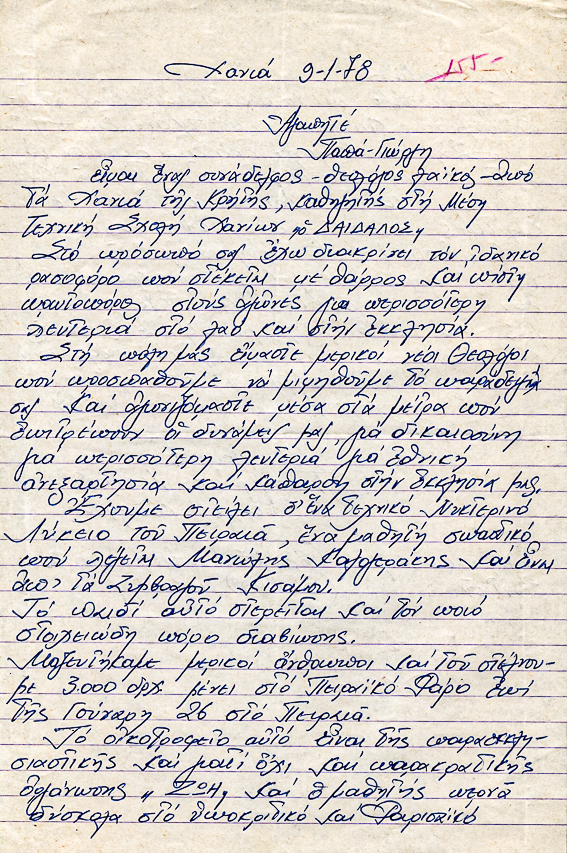 Χανιά 9-1-78
155-
Αγαπητέ
Παπά-Γιώργη
εἶμαι ἕνας συνάδελφος - θεολόγος λαϊκός - ἀπό
τά Χανιά τῆς Κρήτης, καθηγητής στή Μέση
Τεχνική Σχολή Χανίων "ὁ ΔΑΙΔΑΛΟΣ"
Στό πρόσωπό σας ἔχω διακρίνει τόν ἰδανικό
ρασοφόρο πού στέκεται μέ θάρρος καί πίστη
πρωτοπόρος στούς ἀγῶνες γιά περισσότερη
λευτεριά στό λαό καί στήν ἐκκλησία.
Στή πόλη μας εἴμαστε μερικοί νέοι Θεολόγοι
πού προσπαθοῦμε νά μιμηθοῦμε τό παράδειγμά
σας καί ἀγωνιζόμαστε μέσα στά μέτρα πού
ἐπιτρέπουν οἱ δυνάμεις μας, γιά δικαιοσύνη
γιά περισσότερη λευτεριά γιά ἐθνική
ἀνεξαρτησία καί κάθαρση στήν ἐκκλησία μας.
Ἔχουμε στείλει σ' ἕνα τεχνικό Νυκτερινό
Λύκειο τοῦ Πειραιᾶ, ἕνα μαθητή σπαστικό
πού λέγεται Μανώλης Καλογεράκης καί εἶναι
ἀπ' τά Κισάμου.
Τό παιδί αὐτό στερεῖται καί τόν ποιό
στοιχειώδη πόρο διαβίωσης.
Μαζευτήκαμε μερικοί ἄνθρωποι καί τοῦ στέλνου-
με 3.000 δρχ. μένει στό Πειραϊκό Φάρο ἐπί
τῆς Γούναρη 26 στό Πειραιᾶ.
Τό οἰκοτροφεῖο αὐτό εἶναι τῆς παραεκκλη-
σιαστικῆς καί γιατί ὄχι καί παρακρατικῆς
ὀργάνωσης "ΖΩΗ" καί ὁ μαθητής περνᾶ
δύσκολα στό ὑποκριτικό καί Φαρισαϊκό